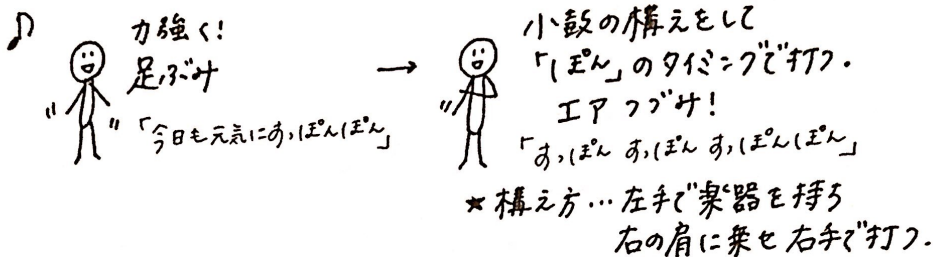 力強く!
足ぶみ
「今日も元気にすっぽんぽん」
小鼓の構えをして
「ぽん」のタイミングで打つ.
エアつづみ!
「すっぽん すっぽん すっぽんぽん」
★構え方…左手で楽器を持ち
右の肩に乗せ右手で打つ.